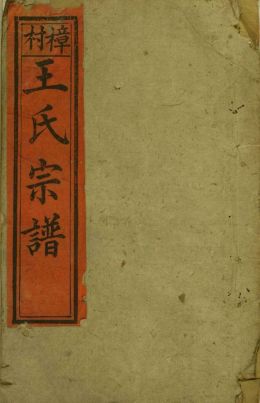 樟村
王氏宗譜